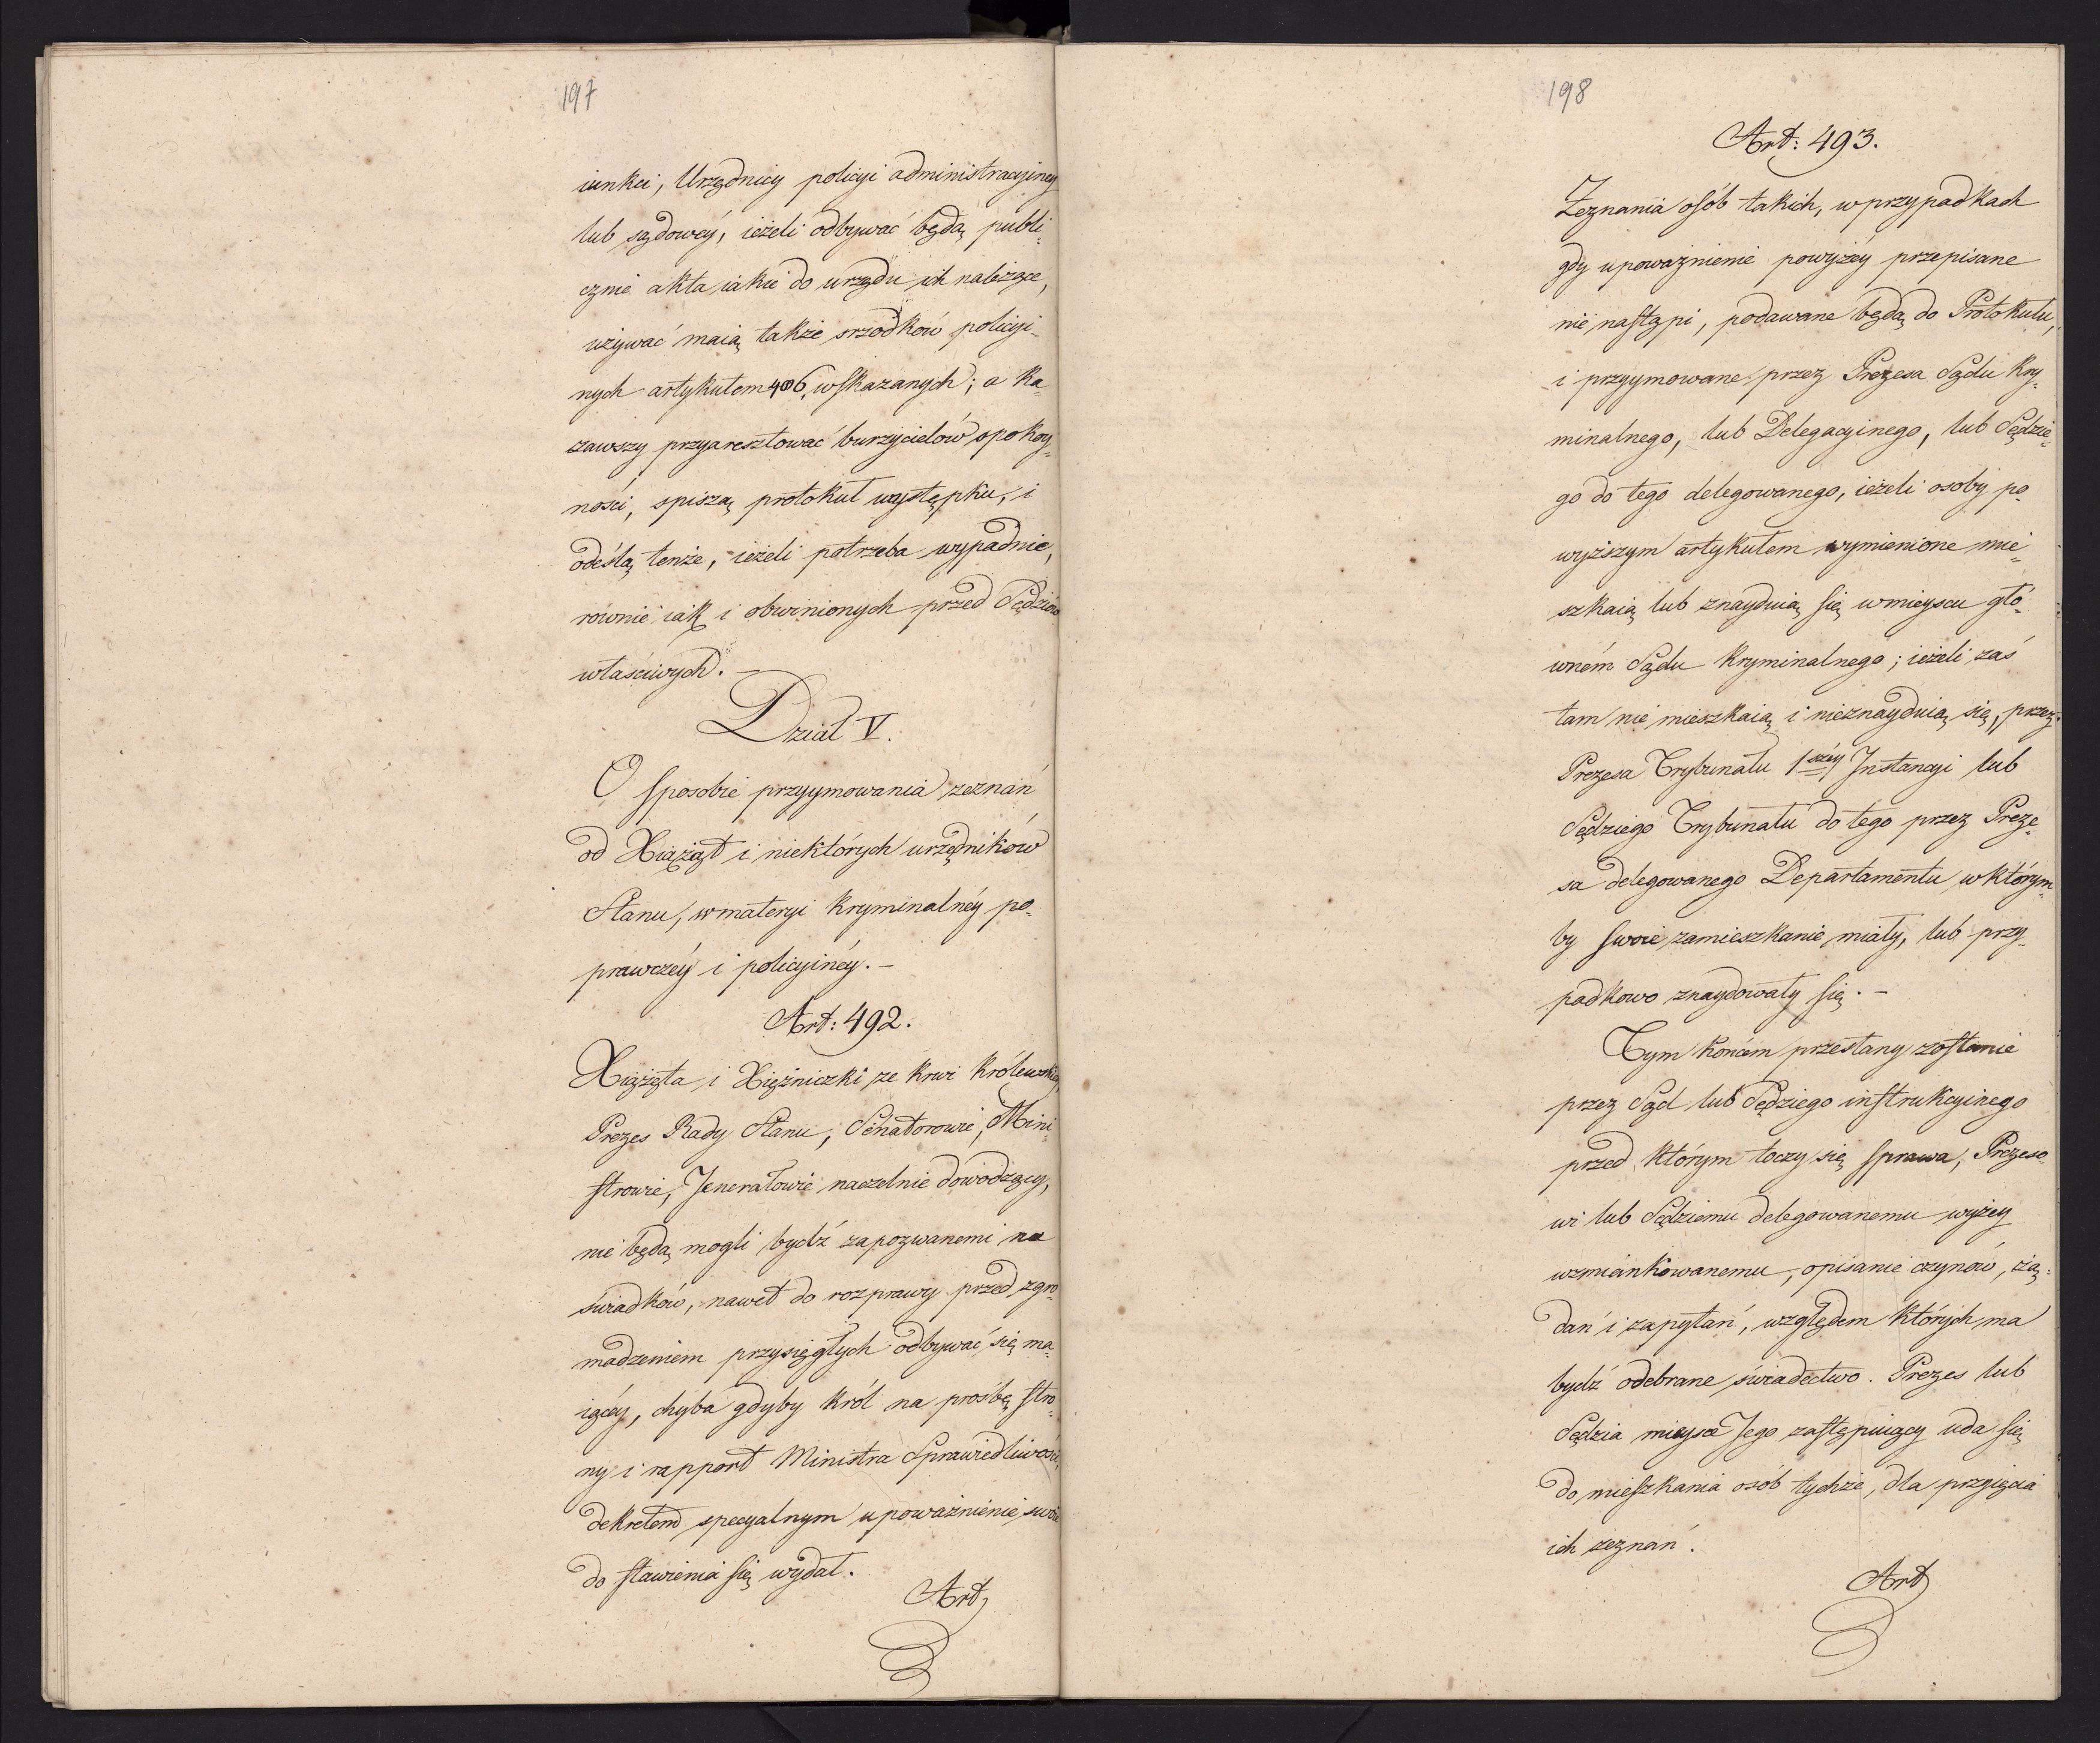 197
iunkci, Urzędnicy policyi administracyiney
lub sądowéy, ieżeli odbywać będą publi-
cznie akta iakie do urzędu ich należące,
używać maią także srzodków policyi-
nych artykułem 406. wskazanych; a ka-
zawszy przyaresztować burzycielów spokoy-
ności, spiszą protokuł występku, i
odeślą tenże, ieżeli potrzeba wypadnie,
rownie iak i obwinionych przed Sędziow
właściwych. —
Dział V.
O sposobie przyymowania zeznań
od Xiążąt i niektórych urzędników
Stanu, w materyi kryminalnéy po-
prawczéy i policyinéy. —
Art: 492.
Xiążęta i Xiężniczki ze krwi królewskiey
Prezes Rady Stanu, Senatorowie, Mini-
strowie, Jenerałowie naczelnie dowodzący,
nie będą mogli bydź zapozwanemi na
świadków, nawet do rozprawy przed zgro-
madzeniem przysięgłych odbywać się ma-
iącéy, chyba gdyby król na prośbę stro-
ny i rapport Ministra Sprawiedliwości,
dekretem specyalnym upoważnienie swoie
do stawienia się wydał.
Art
198
Art: 493.
Zeznania osób takich, w przypadkach
gdy upoważnienie powyżéy przepisane
nie nastąpi, podawane będą do Protokułu,
i przyymowane przez Prezesa Sądu Kry-
minalnego, lub Delegacyinego, lub Sędzie-
go do tego delegowanego, ieżeli osoby po-
wyższym artykułem wymienione mie-
szkaią lub znayduią się w mieyscu głó-
wném Sądu Kryminalnego; ieżeli zaś
tam nie mieszkaią i nieznayduią się, przez
Prezesa Trybunału 1széy Instancyi lub
Sędziego Trybunału do tego przez Preze-
sa delegowanego Departamentu w którym-
by swoie zamieszkanie miały, lub przy-
padkowo znaydowały się. —
Tym końcem przesłany zostanie
przez Sąd lub Sędziego instrukcyinego
przed którym toczy się sprawa, Prezeso-
wi lub Sędziemu delegowanemu wyżey
wzmiankowanemu, opisanie czynów, żą-
dań i zapytań, względem których ma
bydź odebrane świadectwo. Prezes lub
Sędzia mieysce Jego zastępuiący uda się
do mieszkania osób tychże, dla przyięcia
ich zeznań.
Art